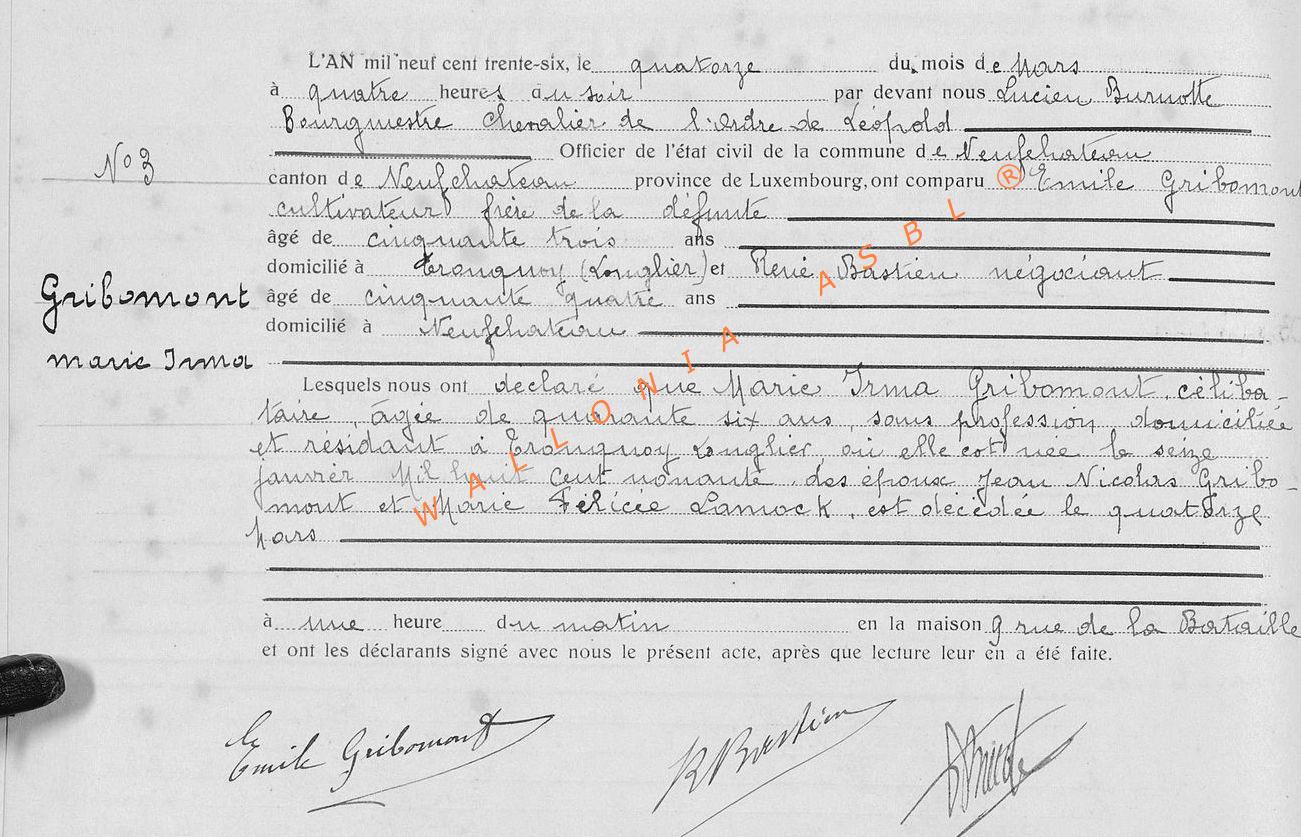 L'AN mil neuf cent trente-six, le quatorze du mois de Mars
à quatre heures du soir par devant nous Lucien Burnotte
Bourgmestre Chevalier de l'Ordre de Léopold
Officier de l'état civil de la commune de Neufchateau
N° 3
canton de Neufchateau province de Luxembourg, ont comparu Emile Gribomont
cultivateur frère de la défunte
âgé de cinquante trois ans
domicilié à Tronquoy (Longlier) et René Bastien négociant
Gribomont
Marie Irma
âgé de cinquante quatre ans
domicilié à Neufchateau
Lesquels nous ont déclaré que Marie Irma Gribomont, céliba-
taire, âgée de quarante six ans, sans profession, domiciliée
et résidant à Tronquoy Longlier, où elle est née le seize
janvier Mil huit cent nonante, des époux Jean Nicolas Gribo-
mont et Marie Félicée Lamock, est décédée le quatorze
Mars
à une heure du matin en la maison 9 rue de la Bataille
et ont les déclarants signé avec nous le présent acte, après que lecture leur en a été faite.
Emile Gribomont
R Bastien
WALLONIA ASBL ®